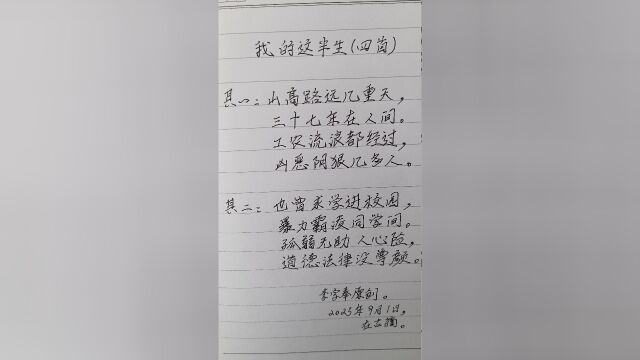 我的这半生(四首)
其一:山高路远几重天,
三十七年在人间。
工农流浪都经过,
凶恶阴狠几多人。
其二:也曾求学进校园,
暴力霸凌同学间。
孤弱无助人心险,
道德法律没尊颜。
李字奉原创。
2025年9月1日,
在古蔺。